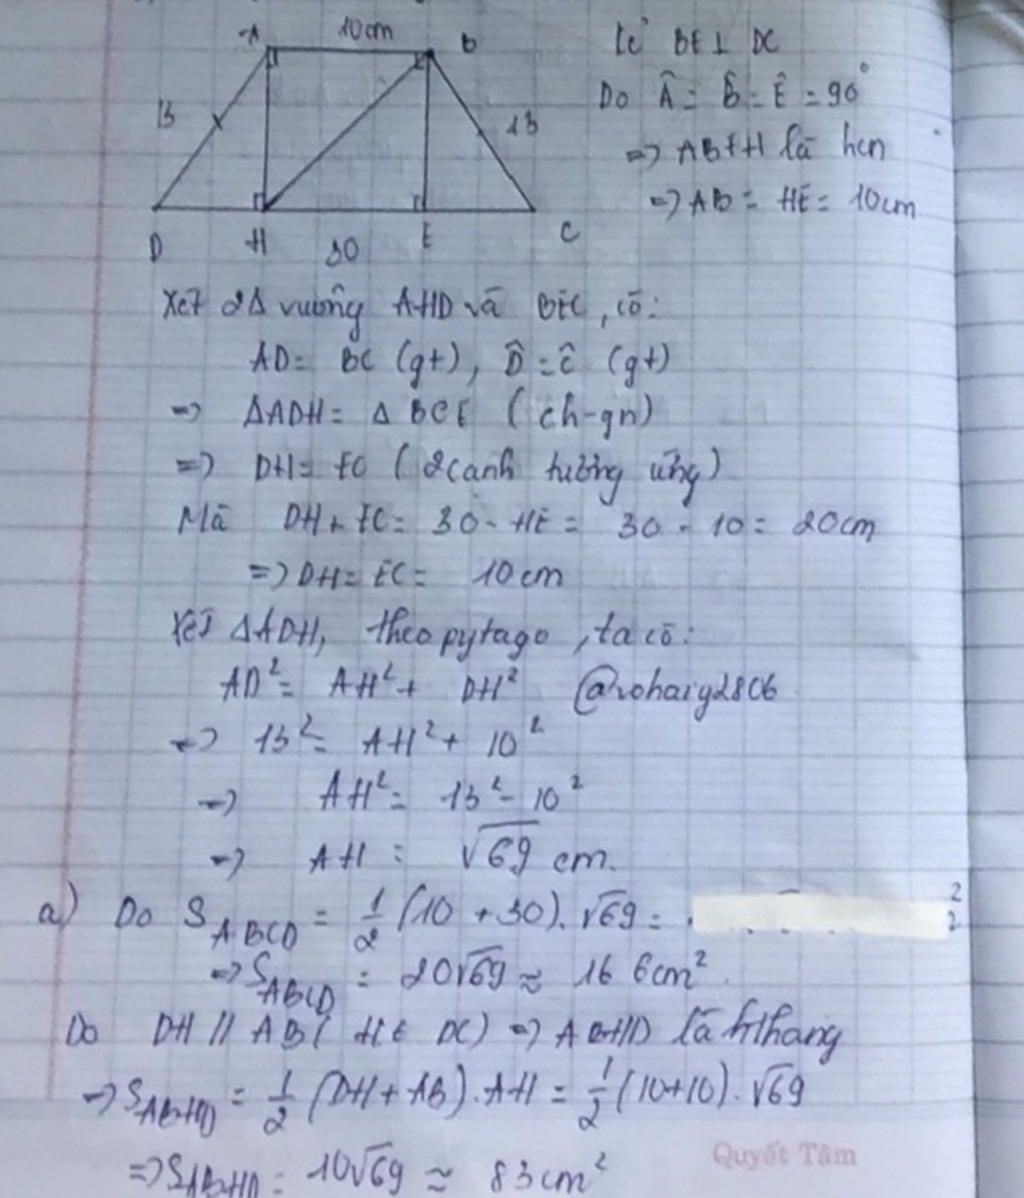 A 10cm B
13 13
D H 30 E C
kẻ BE ⊥ DC
Do Â = B̂ = Ê = 90°
=> ABEH là hcn
=> AB = HE = 10cm
Xét 2Δ vuông AHD và BEC, có:
AD = BC (gt), D̂ = Ĉ (gt)
=> ΔADH = Δ BCE (ch-gn)
=> DH = EC (2 cạnh tương ứng)
Mà DH + EC = 30 - HE = 30 - 10 = 20cm
=> DH = EC = 10cm
Xét ΔADH, theo pytago, ta có:
AD² = AH² + DH² @vohaig2806
=> 13² = AH² + 10²
=> AH² = 13² - 10²
=> AH = √69 cm.
a) Do S_ABCD = 1/2 (10 + 30). √69 =
=> S_ABCD = 20√69 ≈ 166cm².
Do DH // AB ( H ∈ DC) => ABHD là hthang
=> S_ABHD = 1/2 (DH + AB). AH = 1/2 (10+10). √69
=> S_ABHD = 10√69 ≈ 83cm²
Quyết Tâm